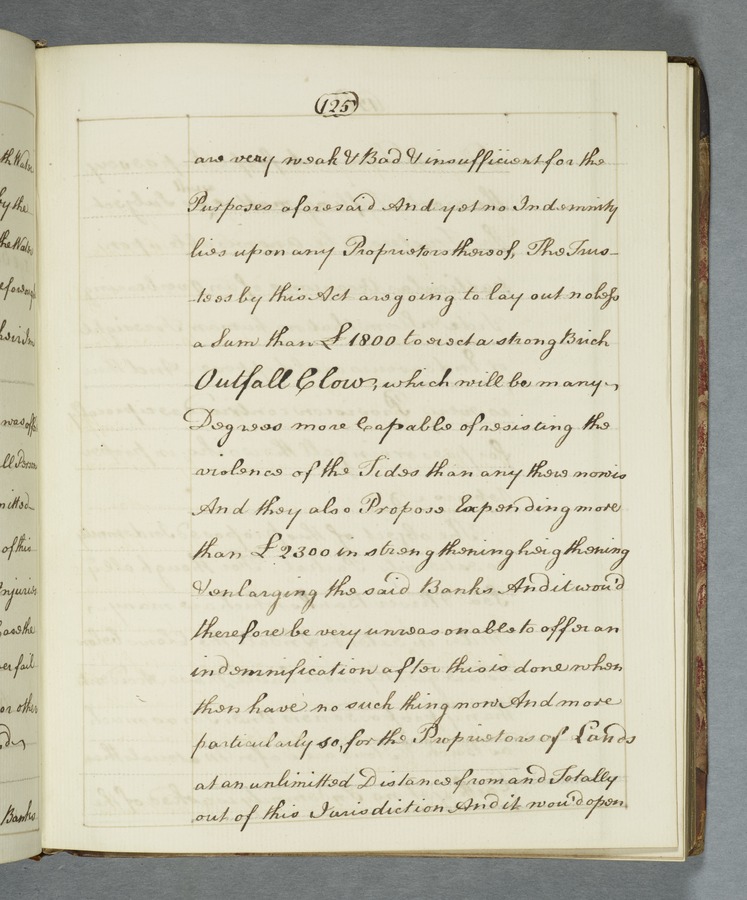 125
are very weak & Bad & insufficient for the
Purposes aforesaid And yet no Indemnity
lies upon any Proprietors thereof, The Trus-
-tees by this Act are going to lay out no less
a Sum than £1800 to erect a strong Brick
Outfall Clow, which will be many
Degrees more Capable of resisting the
violence of the Tides than any there now is
And they also Propose Expending more
than £2300 in strengthening heigthening
& enlarging the said Banks And it wou'd
therefore be very unreasonable to offer an
indemnification after this is done when
then have no such thing now And more
particularly so, for the Proprietors of Lands
at an unlimitted Distance from and Totally
out of this Jurisdiction And it wou'd open
th Water
by the
the Water
of this
Injuries
have the
ver fail
or other
Banks